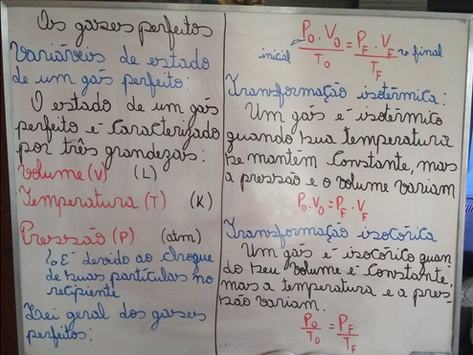 Os gases perfeitos
Variáveis de estado
de um gás perfeito:
O estado de um gás
perfeito é caracterizado
por três grandezas:
Volume (V) (L)
Temperatura (T) (K)
Pressão (P) (atm)
↳ É devido ao choque
de suas partículas no
recipiente
Lei geral dos gases
perfeitos:
inicial P₀ . V₀ / T₀ = P_F . V_F / T_F → final
Transformação isotérmica:
Um gás é isotérmico
quando sua temperatura
se mantém constante, mas
a pressão e o volume variam
P₀ . V₀ = P_F . V_F
Transformação isocórica
Um gás é isocórico quan
do seu volume é constante,
mas a temperatura e a pres
são variam.
P₀ / T₀ = P_F / T_F